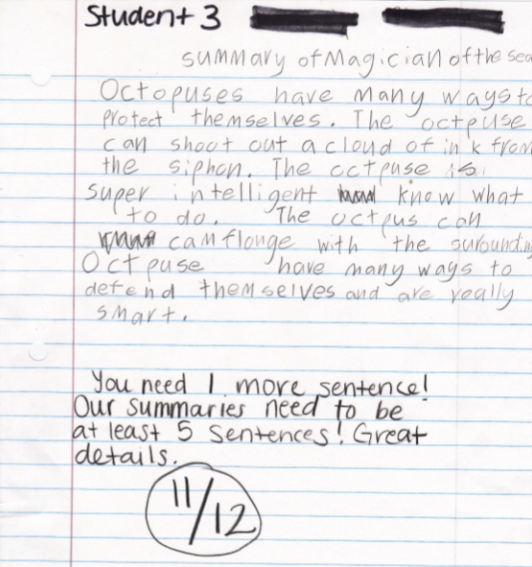 Student 3
summary of Magician of the sea
Octopuses have many ways to
protect themselves. The octpuse
can shoot out a cloud of ink from
the siphon. The octpuse is
super intelligent know what
to do. The octpus can
camflouge with the surounding
Octpuse have many ways to
defend themselves and are really
smart.
You need 1 more sentence!
Our summaries need to be
at least 5 sentences! Great
details.
11/12